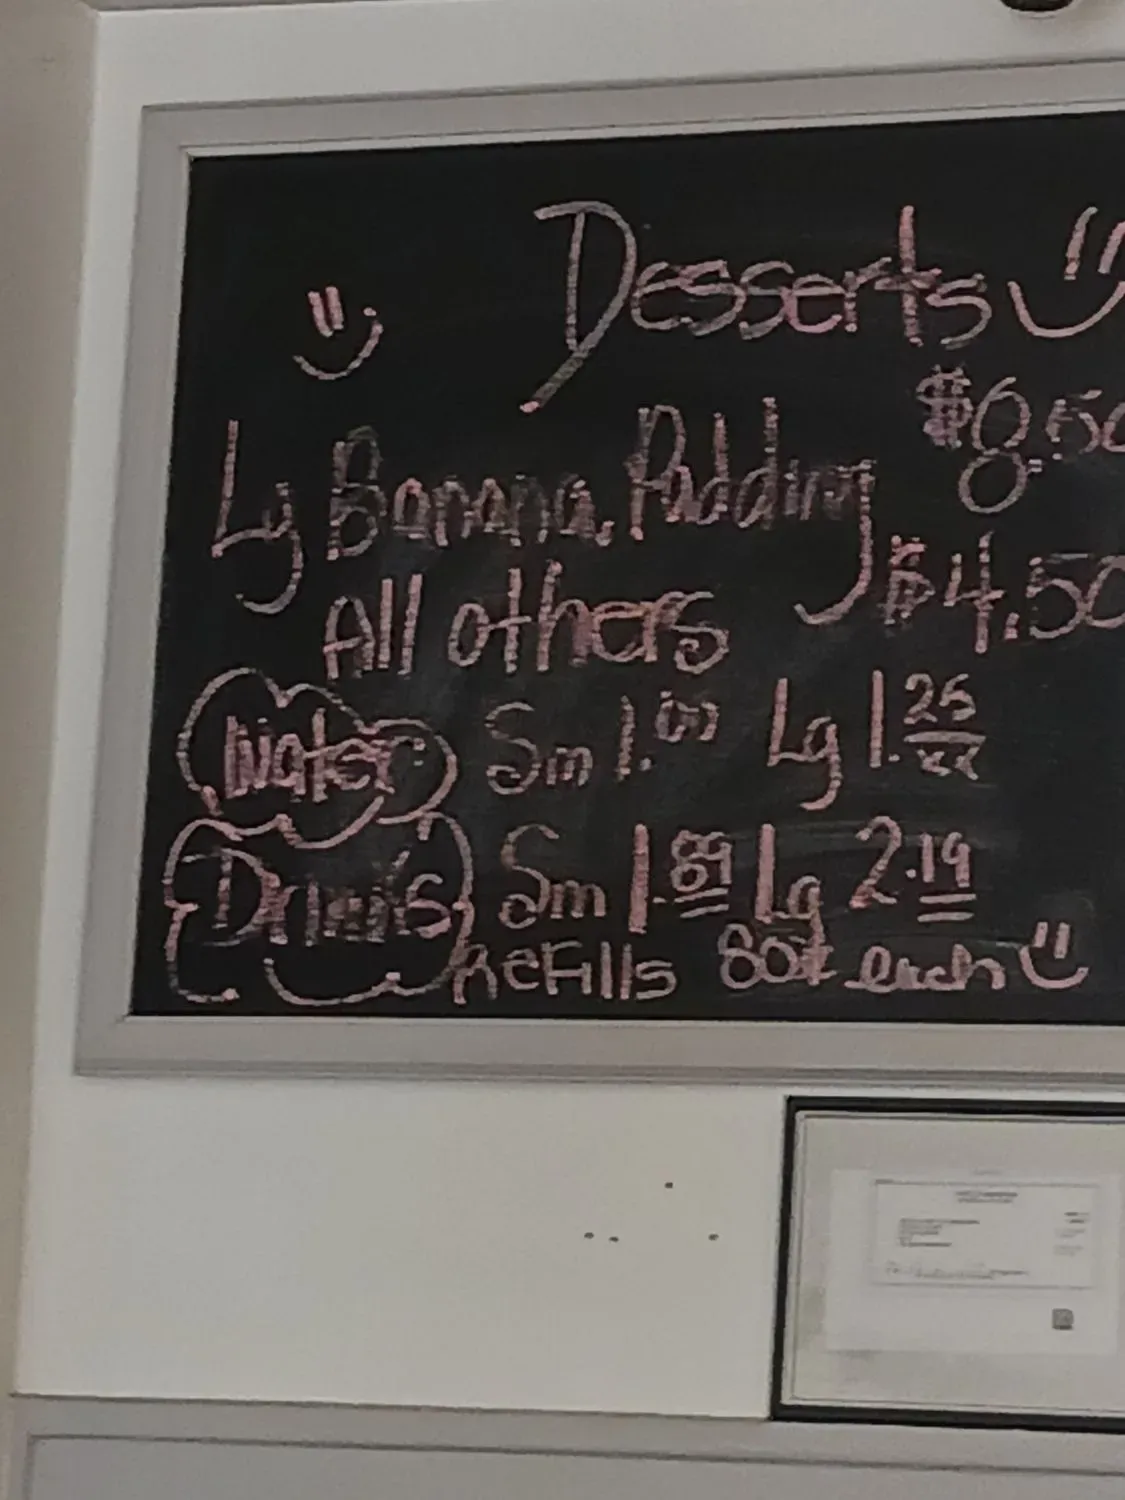 Desserts
Lg Banana Pudding $8.50
All others $4.50
Water Sm 1.00 Lg 1.25
xx
Drinks Sm 1.89 Lg 2.19
Refills 80¢ each